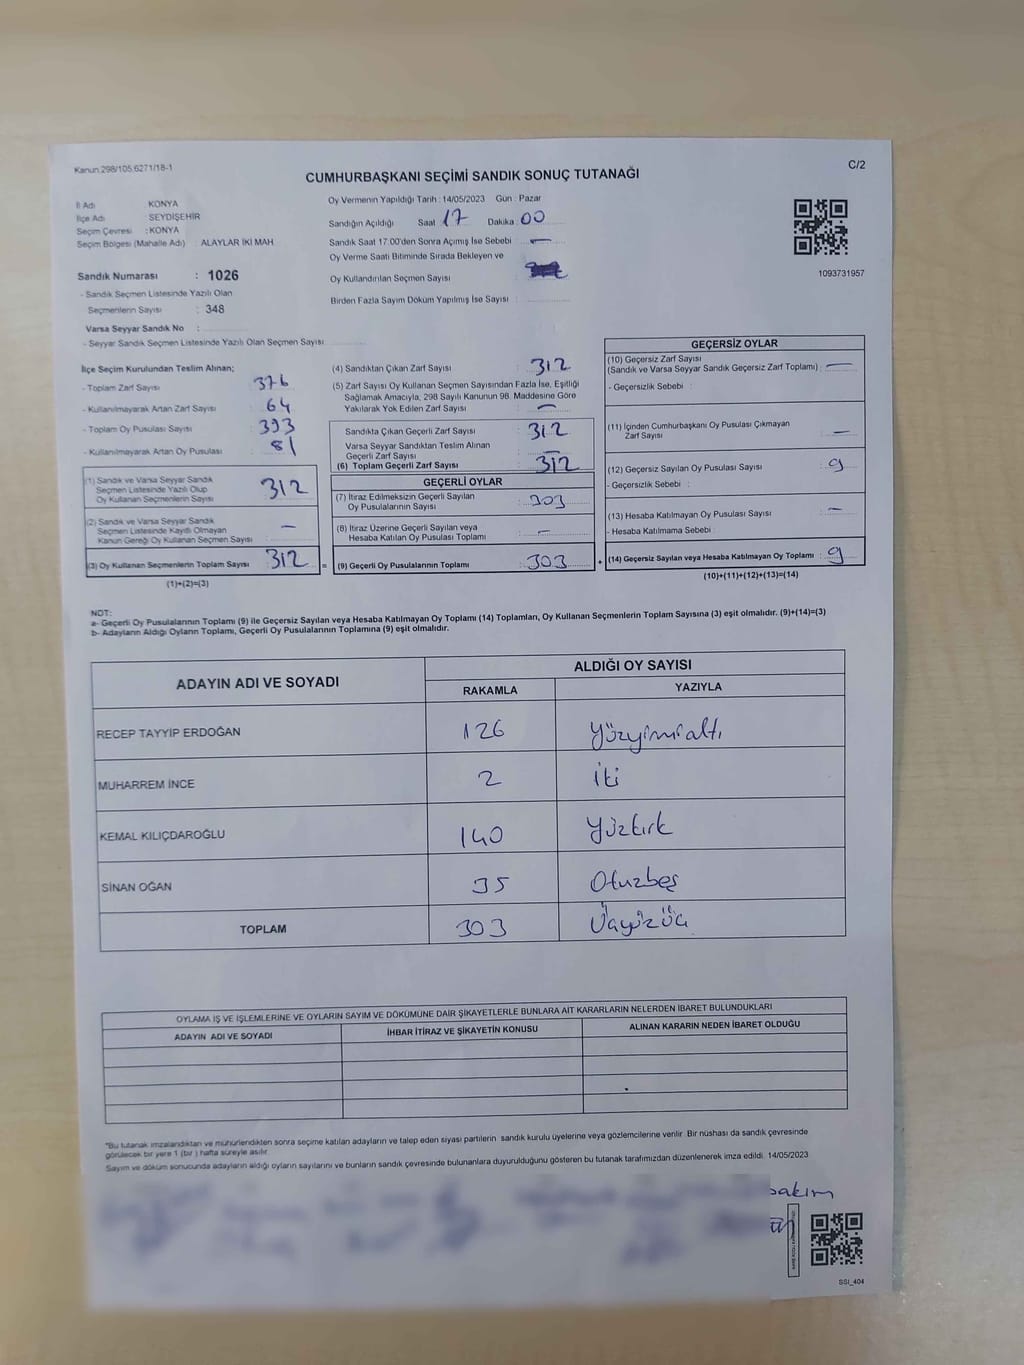 Kanun 298/105,6271/18-1
C/2
CUMHURBAŞKANI SEÇİMİ SANDIK SONUÇ TUTANAĞI
İl Adı KONYA
İlçe Adı SEYDİŞEHİR
Seçim Çevresi : KONYA
Seçim Bölgesi (Mahalle Adı) ALAYLAR İKİ MAH
Sandık Numarası : 1026
- Sandık Seçmen Listesinde Yazılı Olan
Seçmenlerin Sayısı : 348
Varsa Seyyar Sandık No :
- Seyyar Sandık Seçmen Listesinde Yazılı Olan Seçmen Sayısı
Oy Vermenin Yapıldığı Tarih : 14/05/2023 Gün : Pazar
Sandığın Açıldığı Saat 17 Dakika 00
Sandık Saat 17:00'den Sonra Açımış İse Sebebi —
Oy Verme Saati Bitiminde Sırada Bekleyen ve
Oy Kullandırılan Seçmen Sayısı
Birden Fazla Sayım Döküm Yapılmış İse Sayısı :
1093731957
İlçe Seçim Kurulundan Teslim Alınan;
- Toplam Zarf Sayısı 376
- Kullanılmayarak Artan Zarf Sayısı 64
- Toplam Oy Pusulası Sayısı 393
- Kullanılmayarak Artan Oy Pusulası 81
(1) Sandık ve Varsa Seyyar Sandık
Seçmen Listesinde Yazılı Olup
Oy Kullanan Seçmenlerin Sayısı 312
(2) Sandık ve Varsa Seyyar Sandık
Seçmen Listesinde Kayıtlı Olmayan
Kanun Gereği Oy Kullanan Seçmen Sayısı —
(3) Oy Kullanan Seçmenlerin Toplam Sayısı 312 =
(1)+(2)=(3)
(4) Sandıktan Çıkan Zarf Sayısı 312
(5) Zarf Sayısı Oy Kullanan Seçmen Sayısından Fazla İse, Eşitliği
Sağlamak Amacıyla, 298 Sayılı Kanunun 98. Maddesine Göre
Yakılarak Yok Edilen Zarf Sayısı —
Sandıkta Çıkan Geçerli Zarf Sayısı 312
Varsa Seyyar Sandıktan Teslim Alınan
Geçerli Zarf Sayısı —
(6) Toplam Geçerli Zarf Sayısı 312
GEÇERLİ OYLAR
(7) İtiraz Edilmeksizin Geçerli Sayılan
Oy Pusulalarının Sayısı 303
(8) İtiraz Üzerine Geçerli Sayılan veya
Hesaba Katılan Oy Pusulası Toplamı —
(9) Geçerli Oy Pusulalarının Toplamı 303 +
GEÇERSİZ OYLAR
(10) Geçersiz Zarf Sayısı
(Sandık ve Varsa Seyyar Sandık Geçersiz Zarf Toplamı) : —
- Geçersizlik Sebebi :
(11) İçinden Cumhurbaşkanı Oy Pusulası Çıkmayan
Zarf Sayısı —
(12) Geçersiz Sayılan Oy Pusulası Sayısı 9
- Geçersizlik Sebebi :
(13) Hesaba Katılmayan Oy Pusulası Sayısı —
- Hesaba Katılmama Sebebi :
(14) Geçersiz Sayılan veya Hesaba Katılmayan Oy Toplamı : 9
(10)+(11)+(12)+(13)=(14)
NOT:
a- Geçerli Oy Pusulalarının Toplamı (9) ile Geçersiz Sayılan veya Hesaba Katılmayan Oy Toplamı (14) Toplamları, Oy Kullanan Seçmenlerin Toplam Sayısına (3) eşit olmalıdır. (9)+(14)=(3)
b- Adayların Aldığı Oyların Toplamı, Geçerli Oy Pusulalarının Toplamına (9) eşit olmalıdır.
ADAYIN ADI VE SOYADI ALDIĞI OY SAYISI
RAKAMLA YAZIYLA
RECEP TAYYİP ERDOĞAN 126 Yüzyirmialtı
MUHARREM İNCE 2 İki
KEMAL KILIÇDAROĞLU 140 Yüzkırk
SİNAN OĞAN 35 Otuzbeş
TOPLAM 303 Üçyüzüç
OYLAMA İŞ VE İŞLEMLERİNE VE OYLARIN SAYIM VE DÖKÜMÜNE DAİR ŞİKAYETLERLE BUNLARA AİT KARARLARIN NELERDEN İBARET BULUNDUKLARI
ADAYIN ADI VE SOYADI İHBAR İTİRAZ VE ŞİKAYETİN KONUSU ALINAN KARARIN NEDEN İBARET OLDUĞU
*Bu tutanak imzalandıktan ve mühürlendikten sonra seçime katılan adayların ve talep eden siyasi partilerin sandık kurulu üyelerine veya gözlemcilerine verilir. Bir nüshası da sandık çevresinde
görülecek bir yere 1 (bir ) hafta süreyle asılır.
Sayım ve döküm sonucunda adayların aldığı oyların sayılarını ve bunların sandık çevresinde bulunanlara duyurulduğunu gösteren bu tutanak tarafımızdan düzenlenerek imza edildi. 14/05/2023
SSI_404